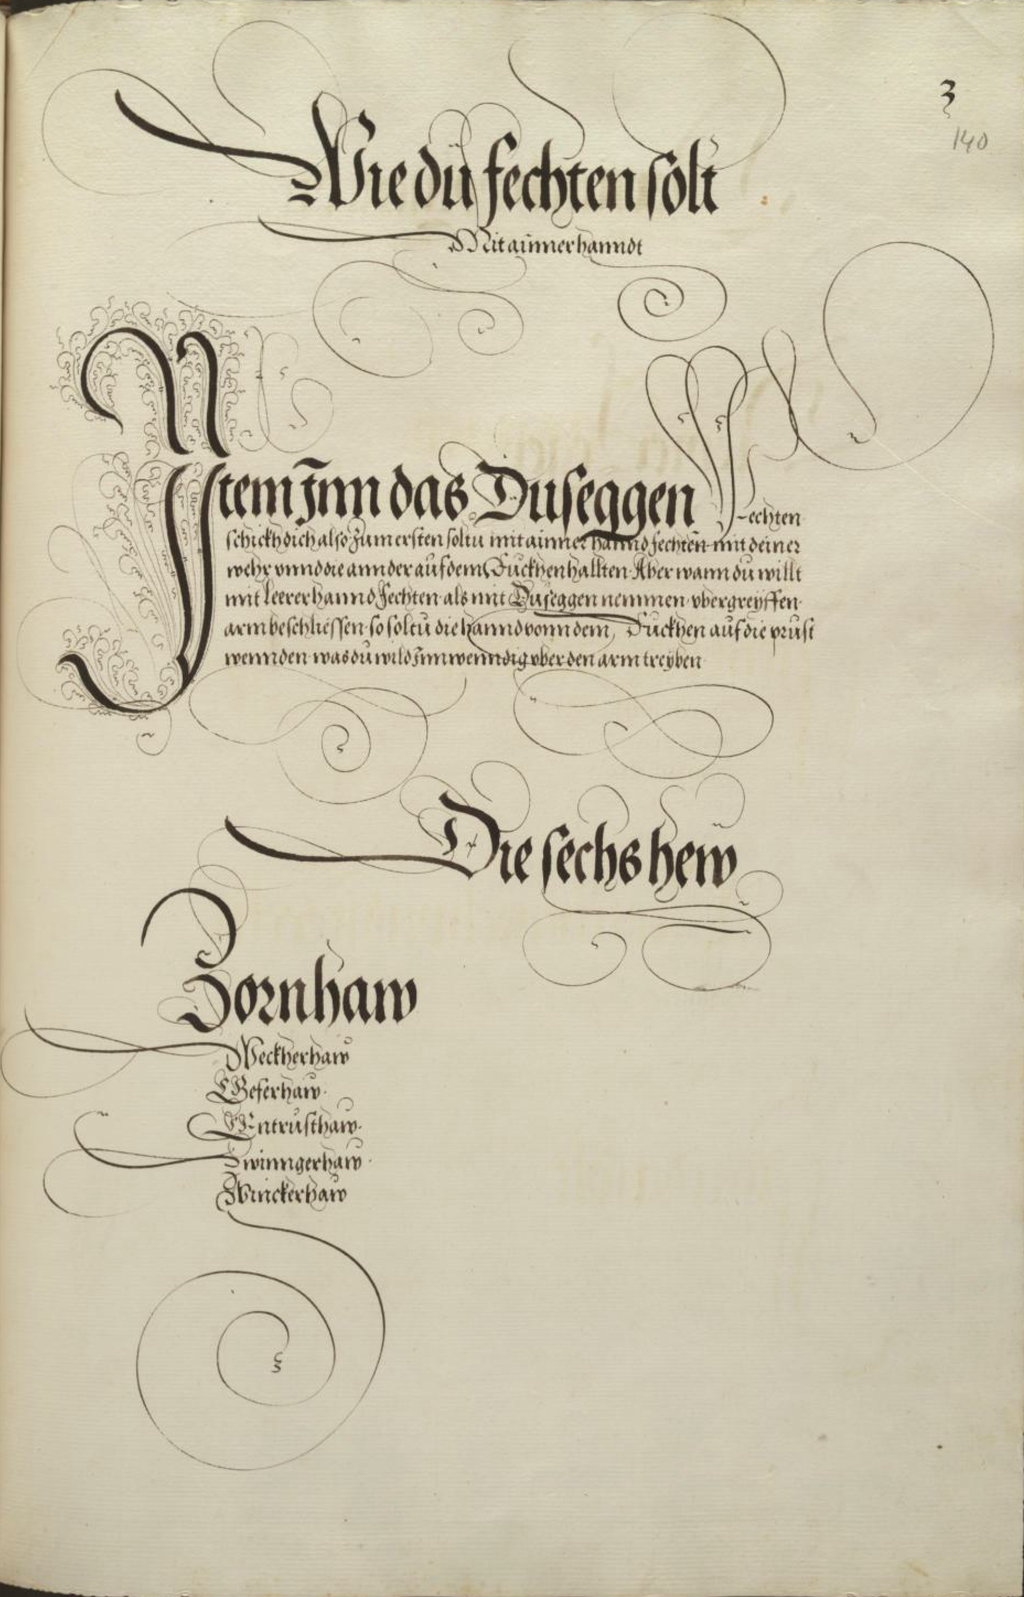 3
140
Wie du fechten solt
Mit ainner hanndt
Ytem Inn das Duseggen Fechten
schickh dich also Zum ersten soltu mit ainner hannd fechten mit deiner
wehr vnnd die annder auf dem Ruckhen hallten Aber wann du willt
mit leerer hannd Fechten als mit Duseggen nemmen vbergreyffen
arm beschliessen so soltu die hannd vonn dem Ruckhen auf die prust
wennden was du wild Inn wenndig vber den arm treyben
Die sechs hew
Zornhaw
Weckherhaw
Geferhaw
Entrusthaw
Zwinngerhaw
Winckerhaw